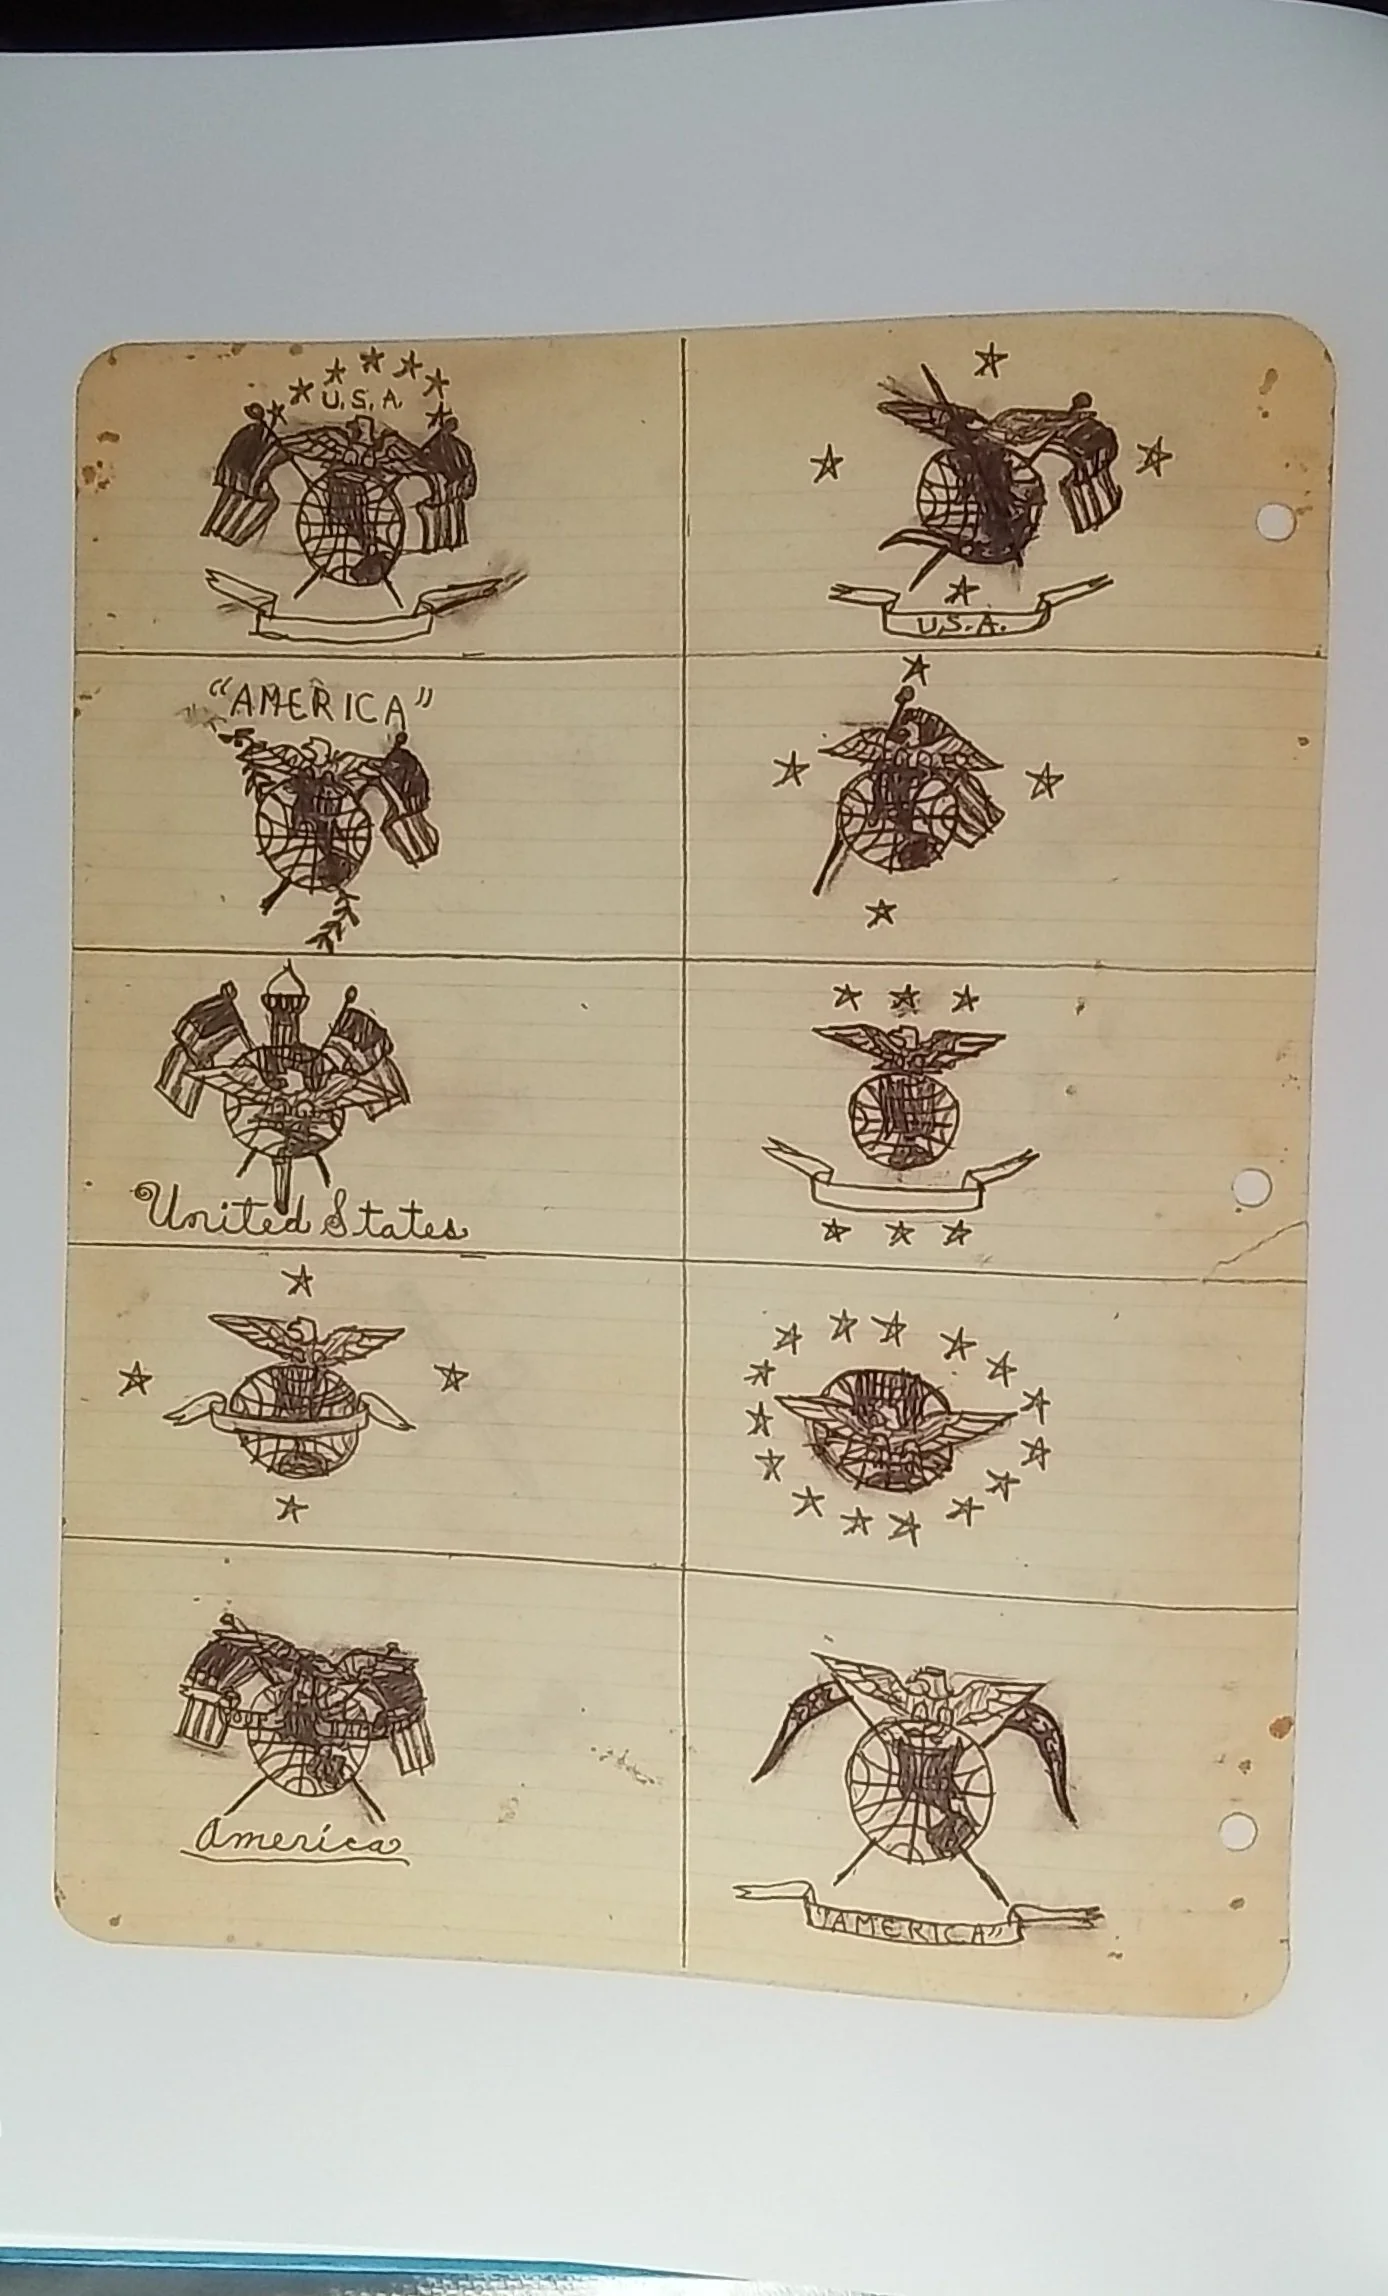 U.S.A.
U.S.A.
"AMERICA"
United States
America
"AMERICA"